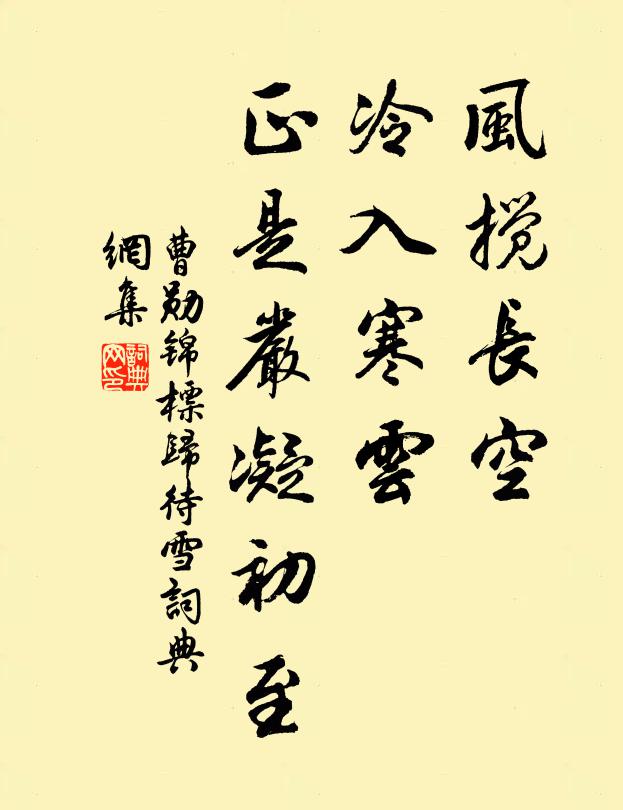 風搅長空
冷入寒雲
正是嚴凝初至
曹勋锦標歸待雪詞典
網集
詞典
网印